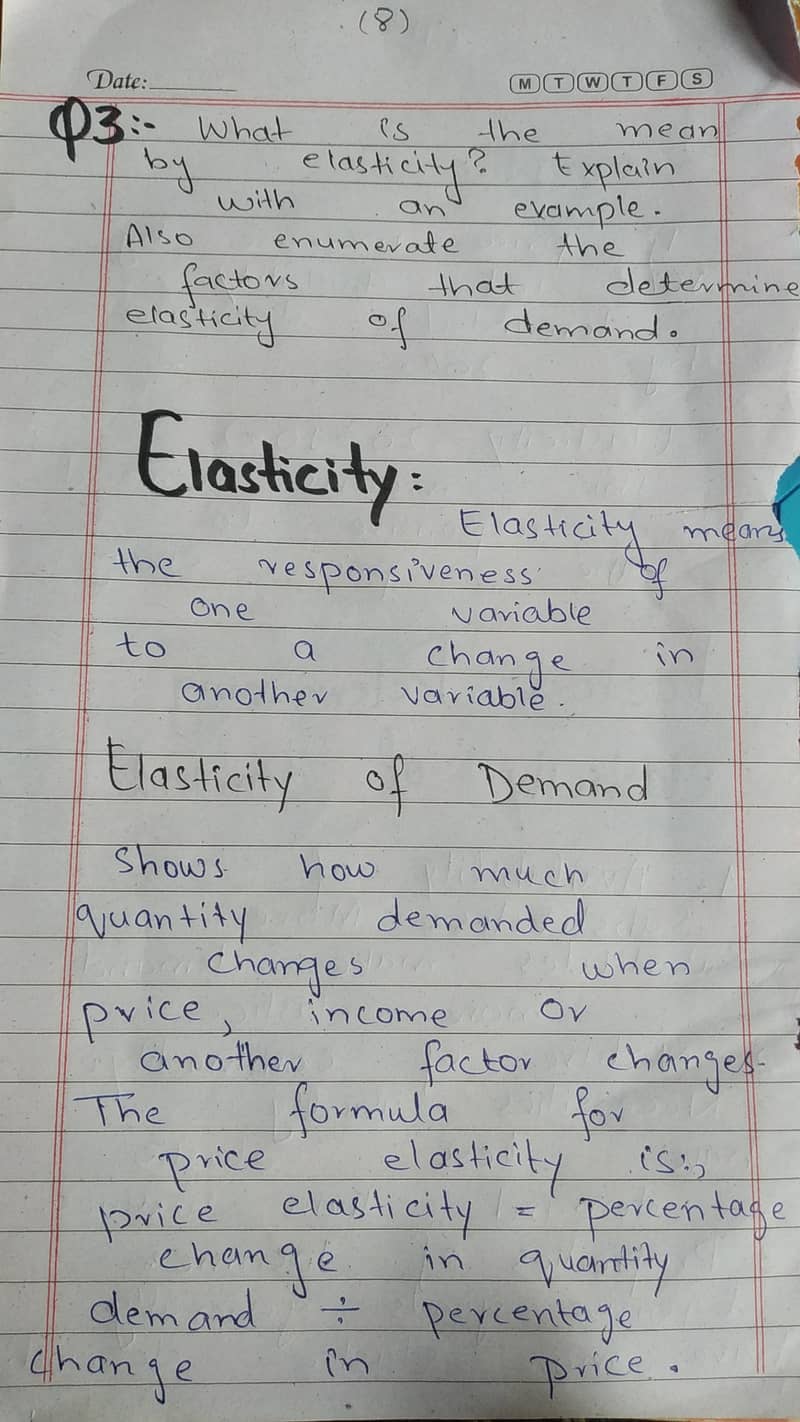 (8)
Date:
M T W T F S
Q3:- What is the mean
by elasticity? Explain
with an example.
Also enumerate the
factors that determine
elasticity of demand.
Elasticity:
Elasticity means
the responsiveness of
one variable
to a change in
another variable.
Elasticity of Demand
Shows how much
quantity demanded
changes when
price, income or
another factor changes.
The formula for
price elasticity is:,
price elasticity = percentage
change in quantity
demand ÷ percentage
change in price.